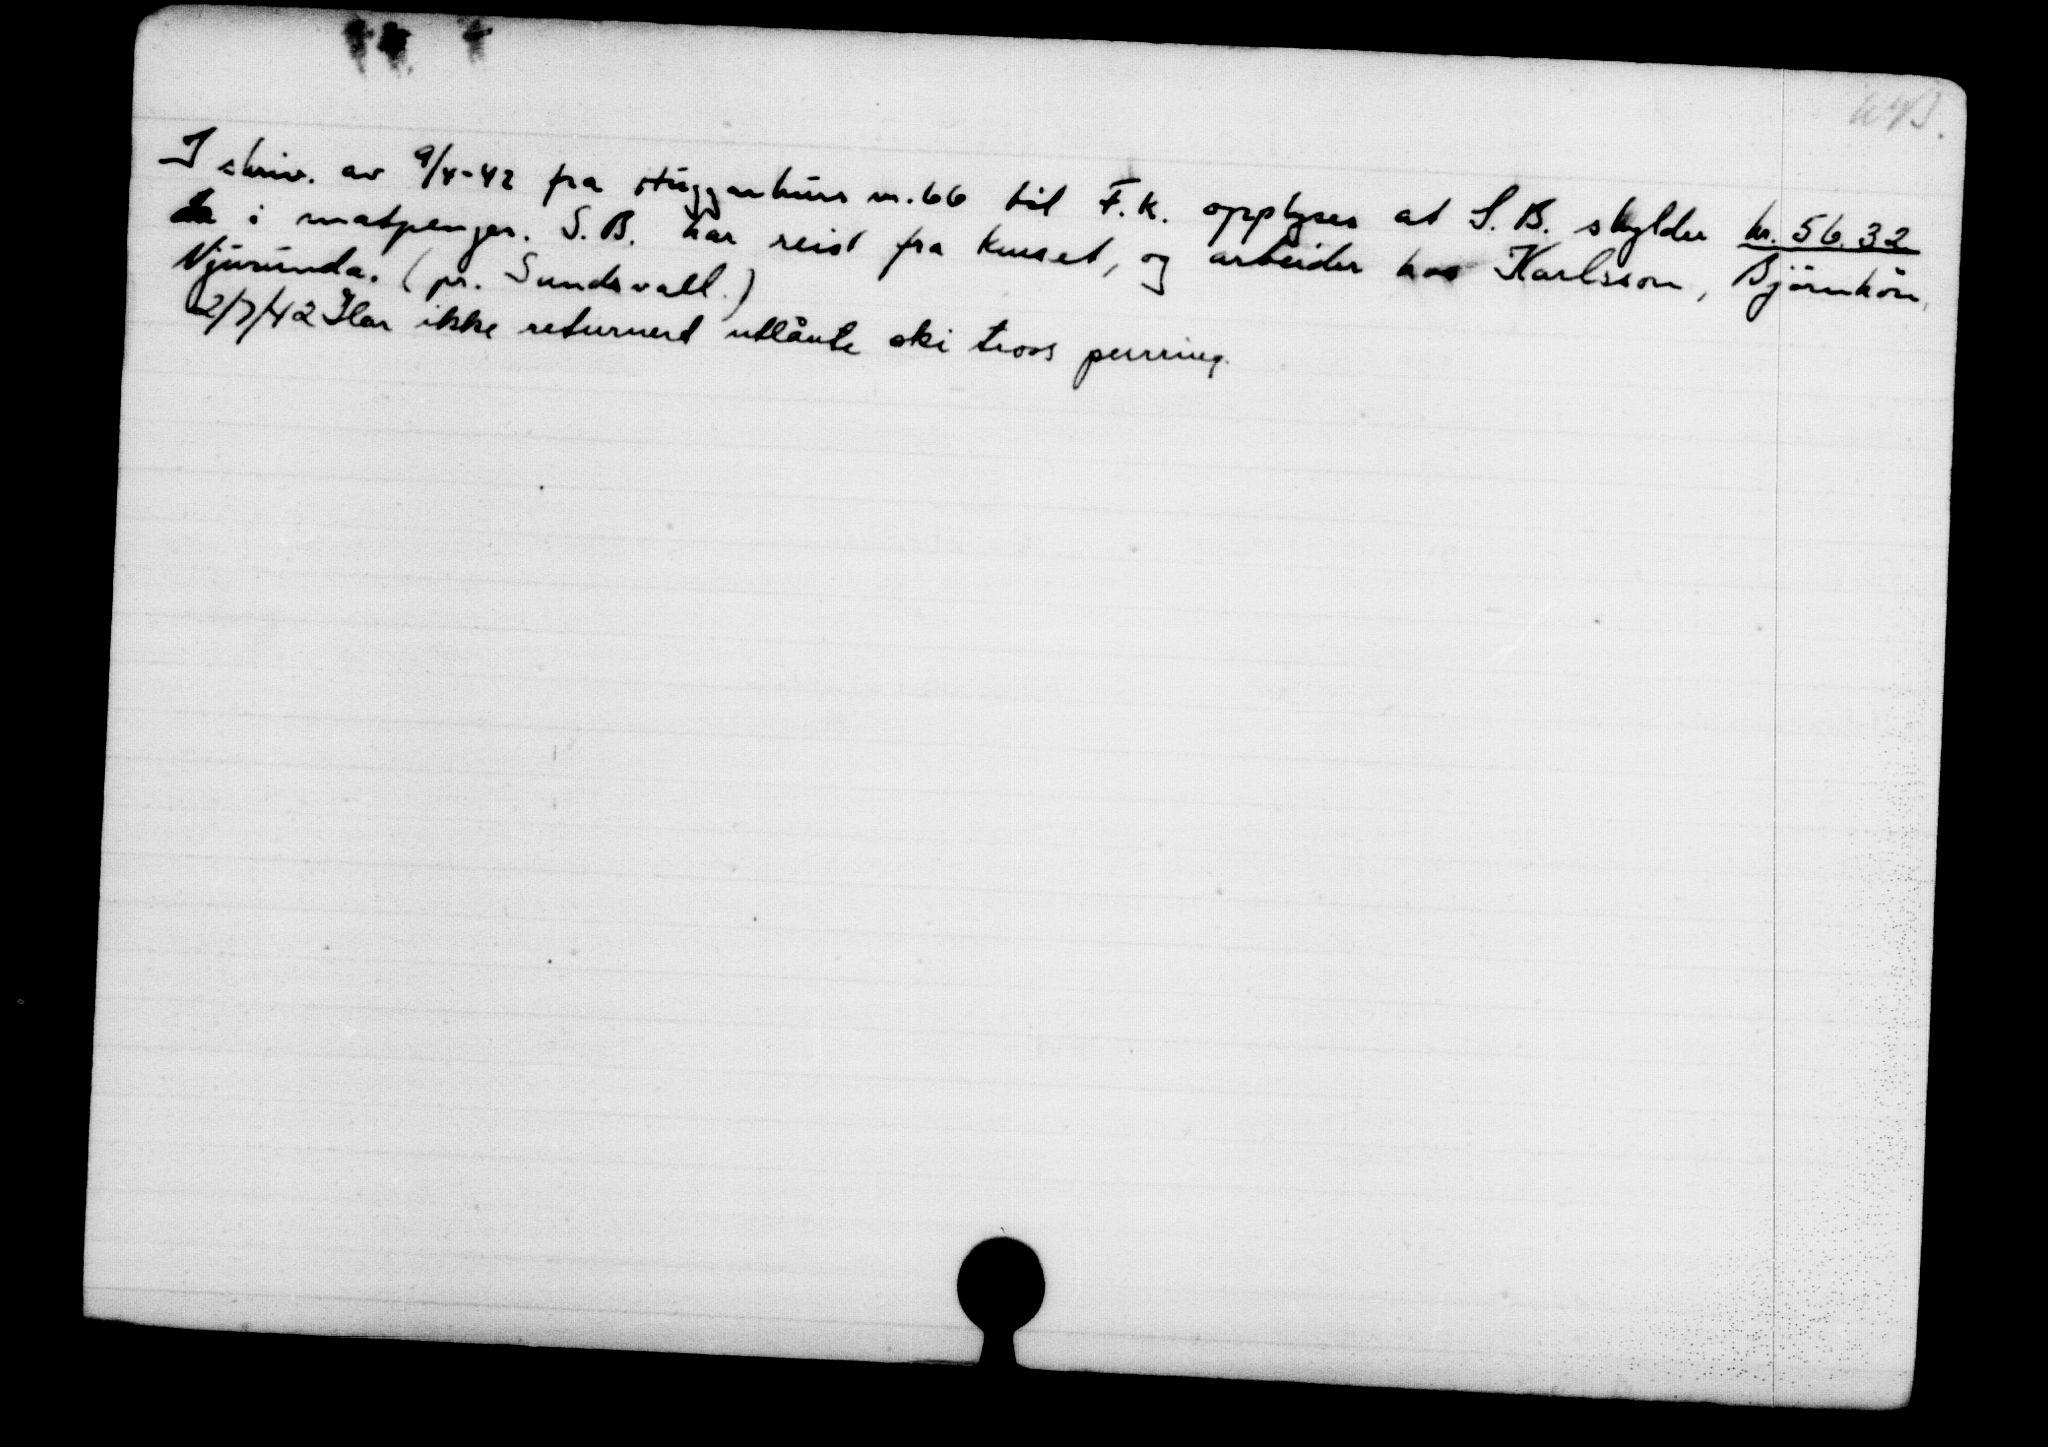 I skriv. av 9/4-42 fra Huggarkurs n. 66 til F.K. opplyses at S.B. skylder kr. 56.32
i matpenger. S.B. har reist fra kurset, og arbeider hos Karlsson, Björnkön,
Njurunda. (pr. Sundsvall.)
2/7/42 Har ikke returnert utlånte ski tross purring.